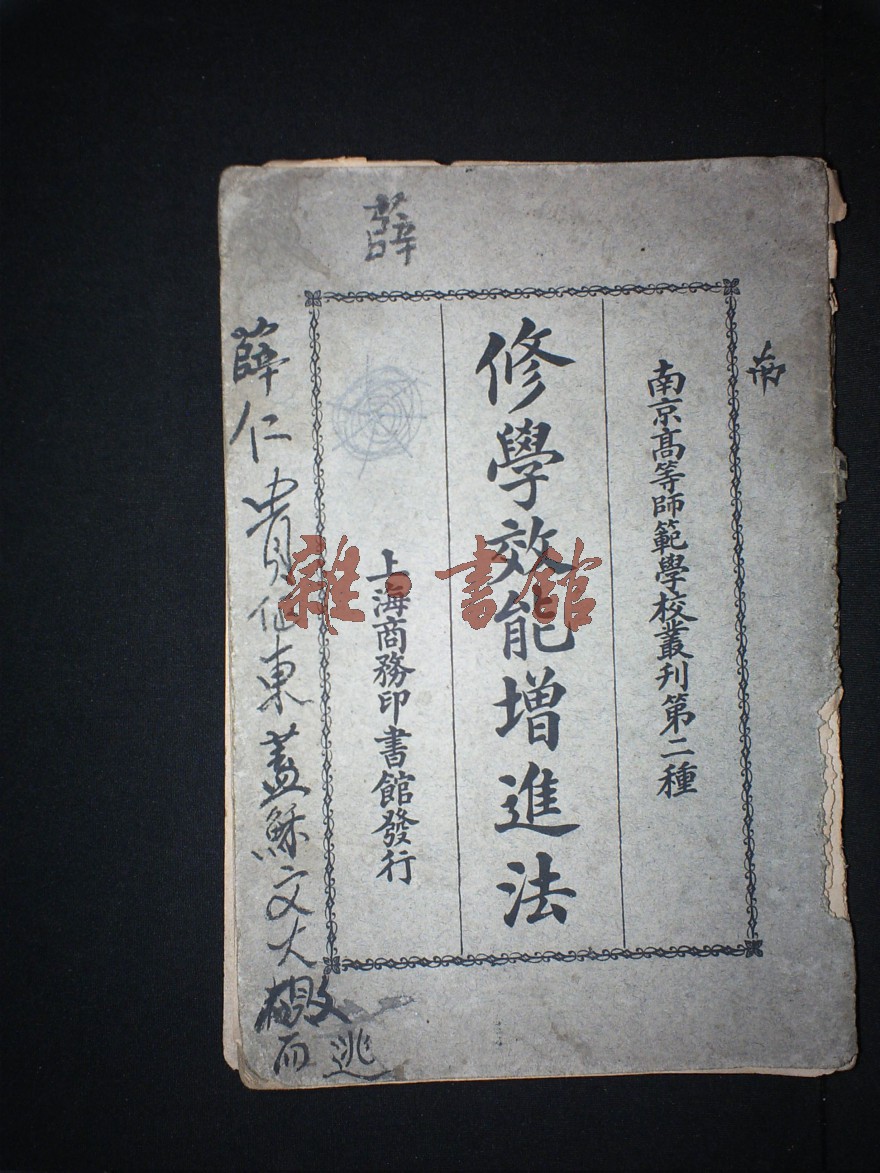 薛
南
南京高等師範學校叢刊第二種
修學效能增進法
上海商務印書館發行
薛仁貴征東蓋蘇文大敗而逃
雜·書館